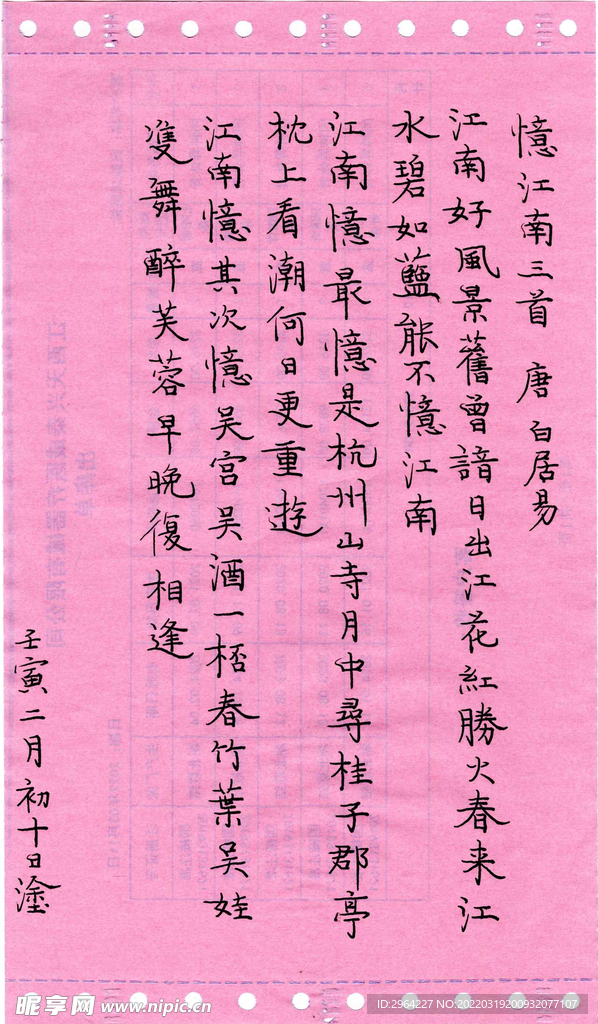 憶江南三首 唐 白居易
江南好風景舊曾諳日出江花紅勝火春来江
水碧如藍能不憶江南
江南憶最憶是杭州山寺月中尋桂子郡亭
枕上看潮何日更重遊
江南憶其次憶吴宫吴酒一桮春竹葉吴娃
雙舞醉芙蓉早晚復相逢
壬寅二月初十日塗
昵享网 www.nipic.cn
ID:2964227 NO:20220319200932077107